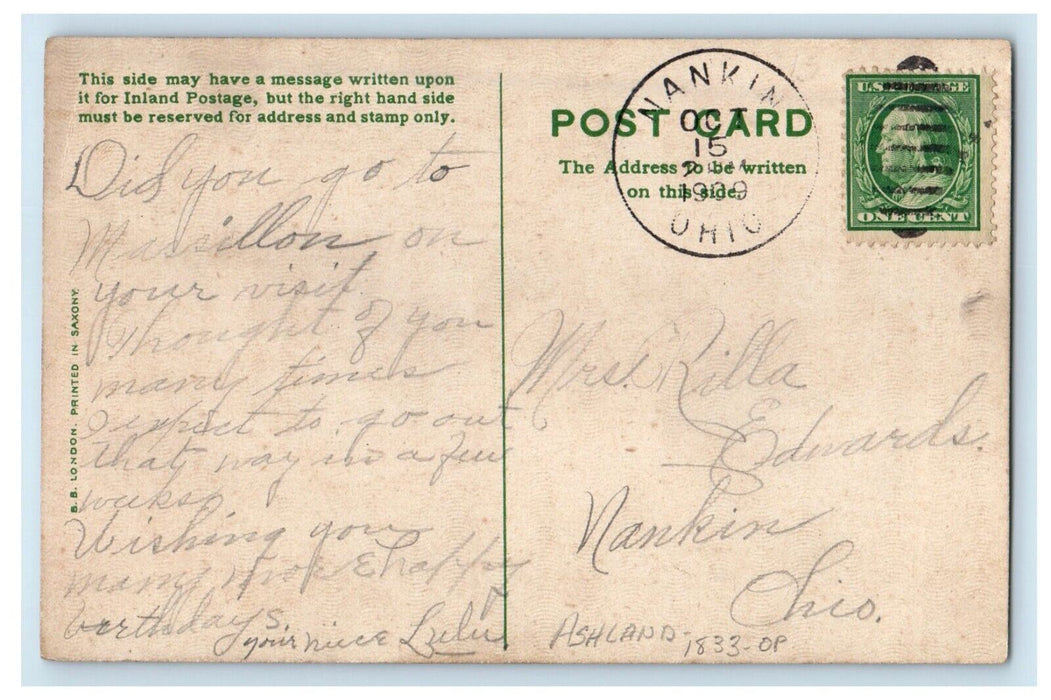 This side may have a message written upon
it for Inland Postage, but the right hand side
must be reserved for address and stamp only.
Did you go to
Massillon on
your visit.
Thought of you
many times
expect to go out
that way in a few
weeks.
Wishing you
many more happy
birthdays.
your niece Lulu
B.B. LONDON. PRINTED IN SAXONY.
POST CARD
The Address to be written
on this side.
NANKIN
OCT
15
1909
OHIO
U.S. POSTAGE
ONE CENT
Mrs. Rilla
Edwards
Nankin
Ohio.
ASHLAND-1833-OP